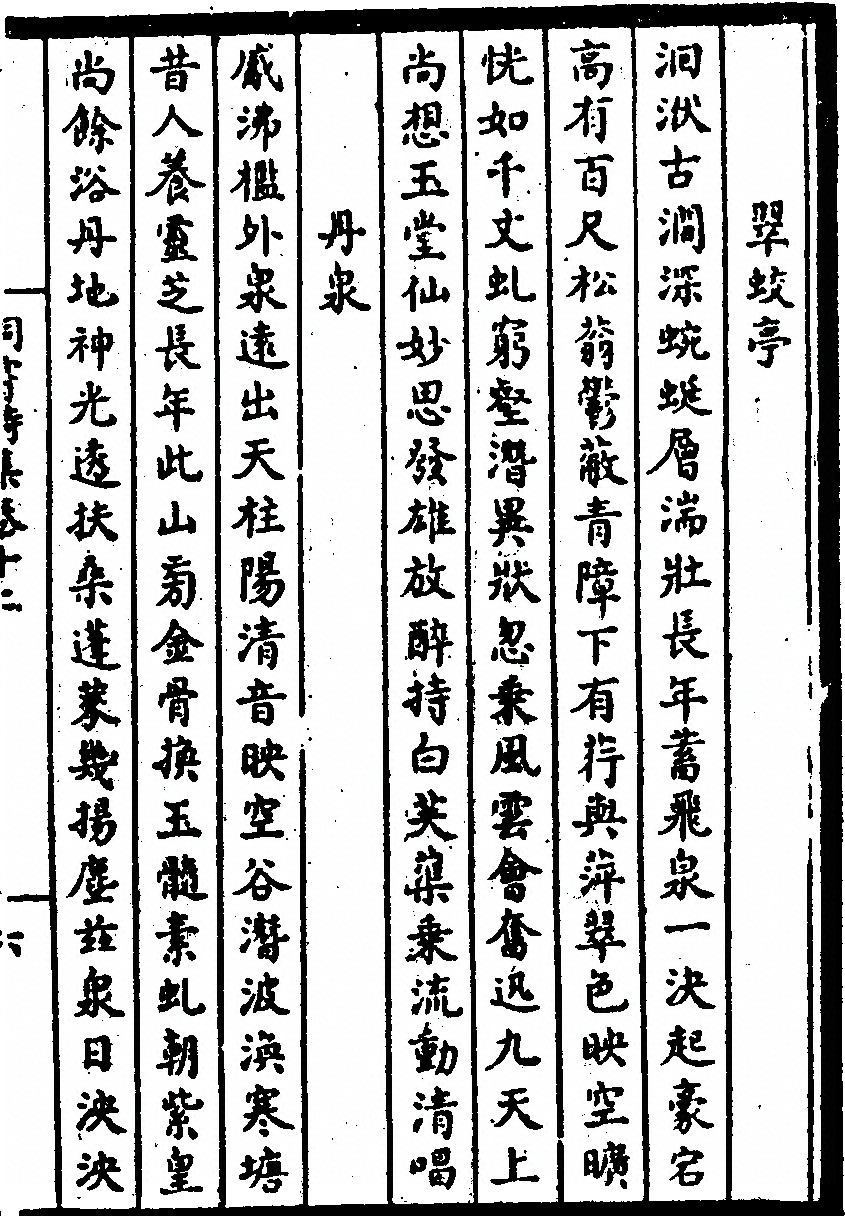 翠蛟亭
洄洑古澗深蜿蜒層湍壯長年蓄飛泉一決起豪宕
高有百尺松蓊鬱蔽青障下有荇與萍翠色映空曠
恍如千丈虬窮壑潛異狀忽乘風雲會奮迅九天上
尚想玉堂仙妙思發雄放醉持白芙蕖乘流動清唱
丹泉
觱沸檻外泉遠出天柱陽清音映空谷潛波渙寒塘
昔人養靈芝長年此山旁金骨換玉髓素虬朝紫皇
尚餘浴丹地神光透扶桑蓬萊幾揚塵茲泉日泱泱
詩集卷十二
六